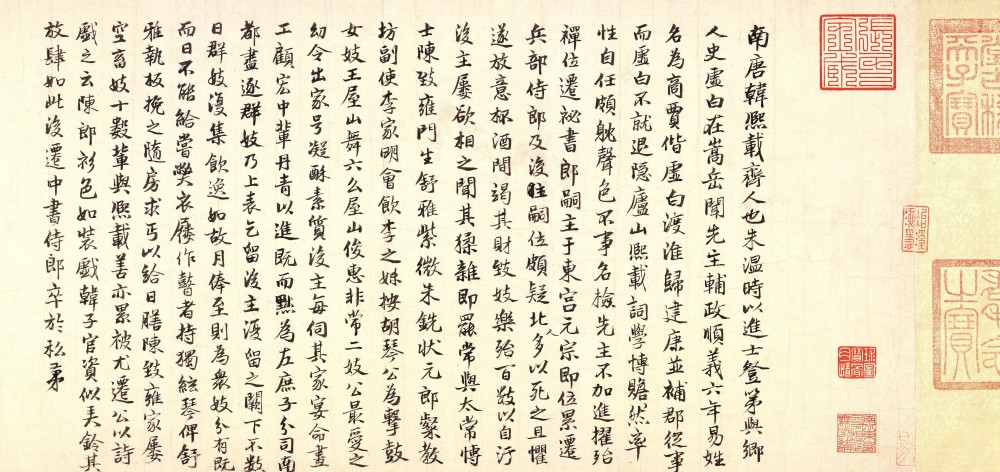 南唐韓熙載齊人也朱温時以進士登第與鄉
人史虛白在嵩岳聞先主輔政順義六年易姓
名為商賈偕虛白渡淮歸建康並補郡從事
而虛白不就退隱廬山熙載詞學博贍然率
性自任頗躭聲色不事名檢先主不加進擢殆
禪位遷祕書郎嗣主于東宮元宗即位累遷
兵部侍郎及後主嗣位頗疑北人多以死之且懼
遂放意杯酒間竭其財致妓樂殆百數以自汙
後主屢欲相之聞其猱雜即罷常與太常博
士陳致雍門生舒雅紫微朱銑狀元郎粲教
坊副使李家明會飲李之妹按胡琴公為擊鼓
女妓王屋山舞六幺屋山俊惠非常二妓公最愛之
幼令出家号凝酥素質後主每伺其家宴命畫
工顧宏中輩丹青以進既而黜為左庶子分司南
都盡逐群妓乃上表乞留後主復留之闕下不數
日群妓復集飲逸如故月俸至則為衆妓分有既
而日不能給嘗弊衣屨作瞽者持獨絃琴俾舒
雅執板挽之隨房求丐以給日膳陳致雍家屢
空畜妓十數輩與熙載善亦累被尤遷公以詩
戲之云陳郎衫色如裝戲韓子官資似美鈴其
放肆如此後遷中書侍郎卒於私第